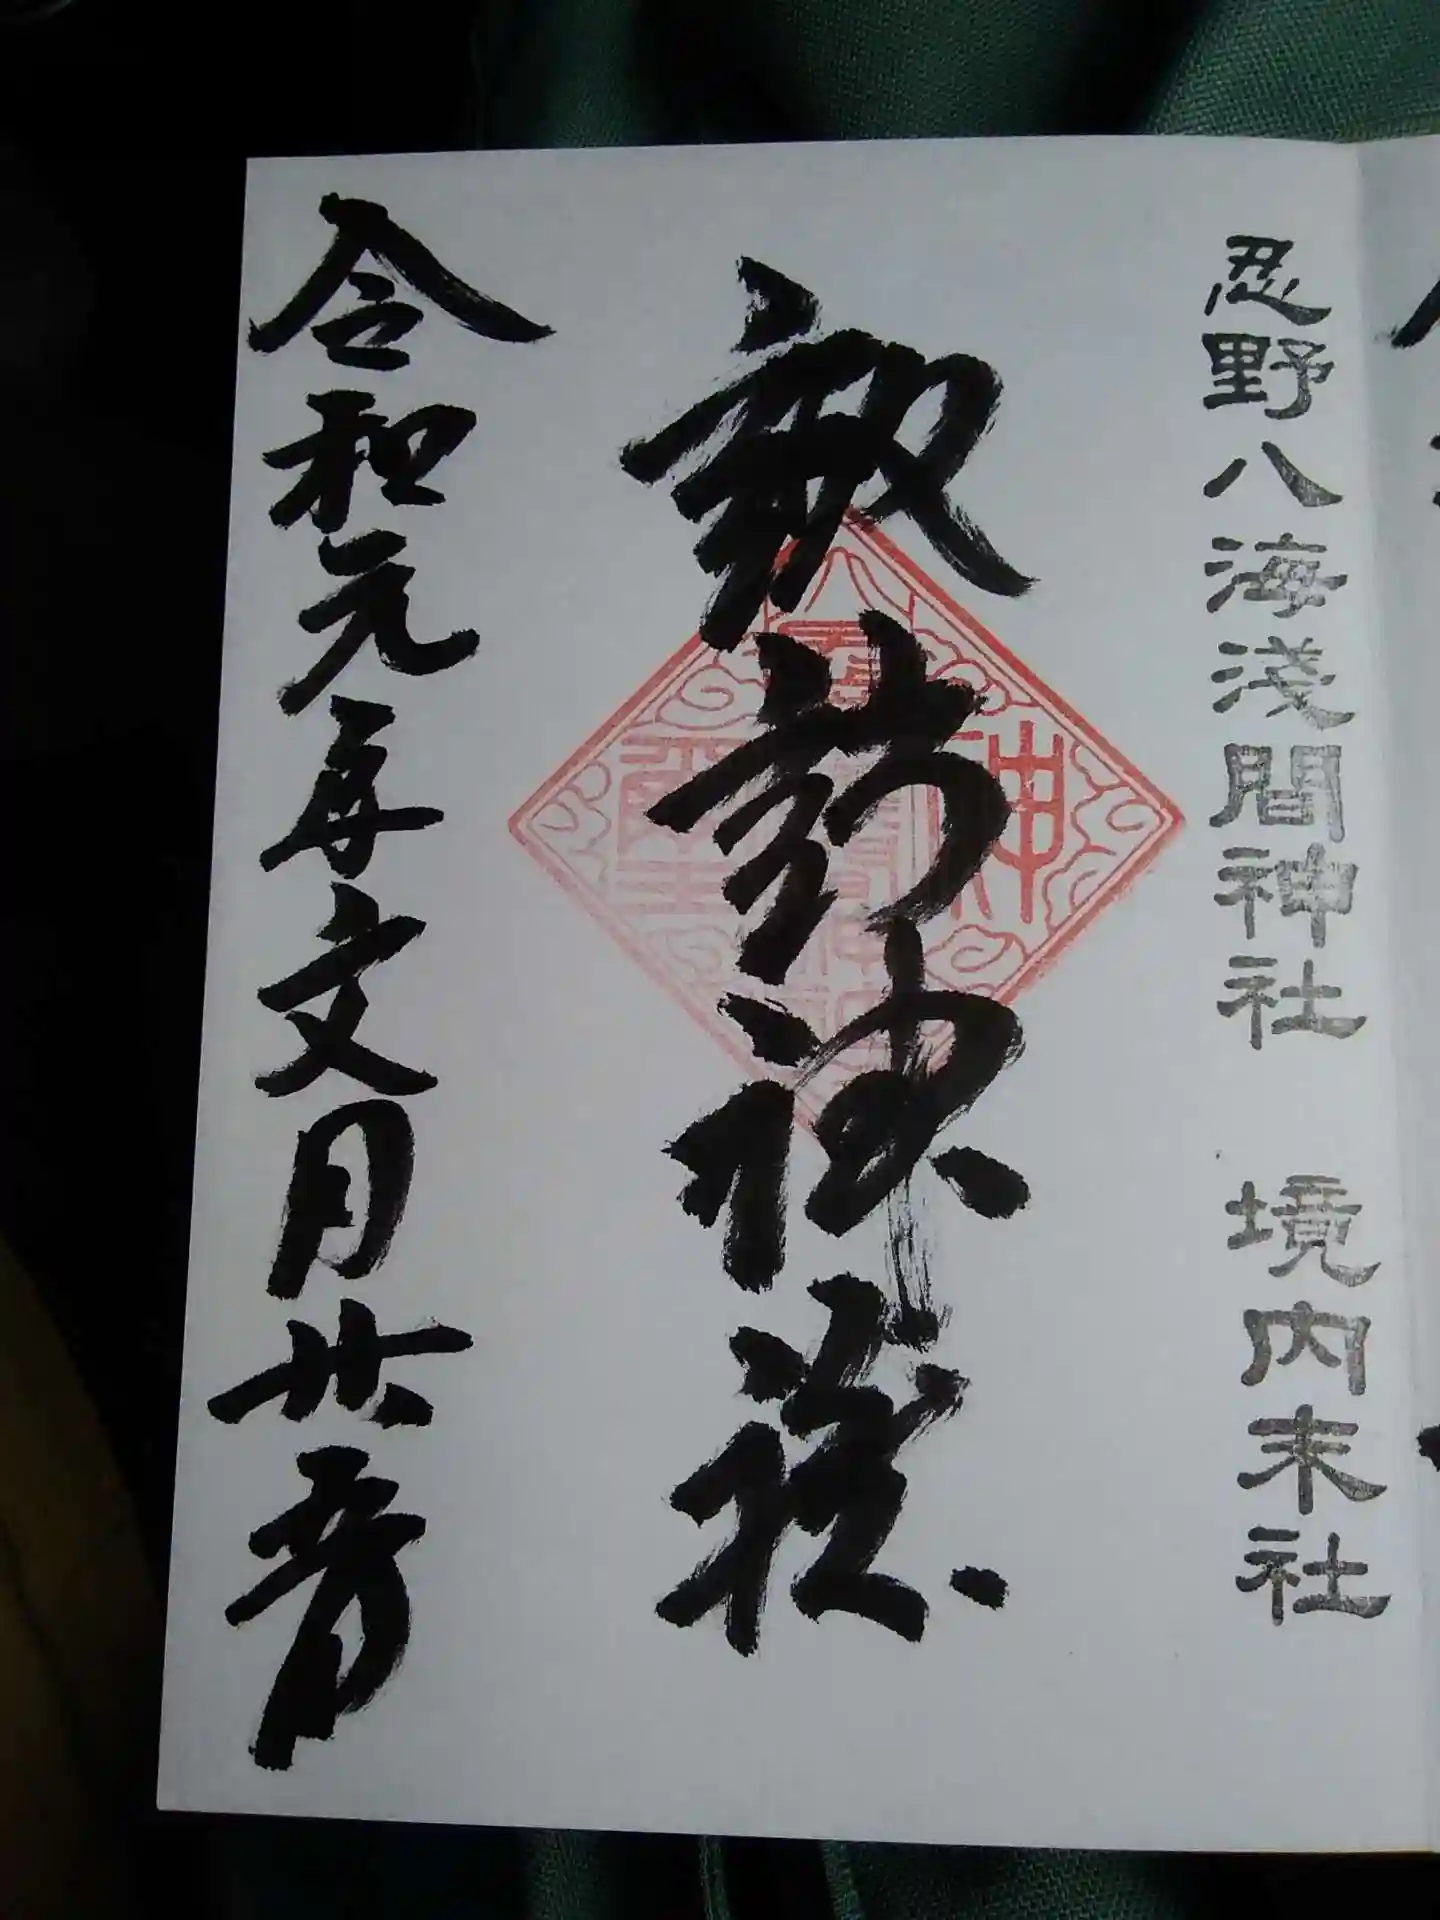 忍野八海淺間神社　境内末社
諏訪神社
令和元年文月廿五日